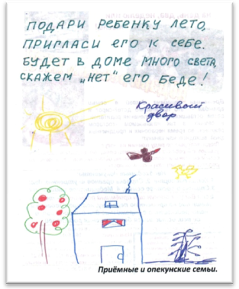 ПОДАРИ РЕБЕНКУ ЛЕТО,
ПРИГЛАСИ ЕГО К СЕБЕ.
БУДЕТ В ДОМЕ МНОГО СВЕТА,
СКАЖЕМ „НЕТ" ЕГО БЕДЕ!
Красивый
двор
Приёмные и опекунские семьи.